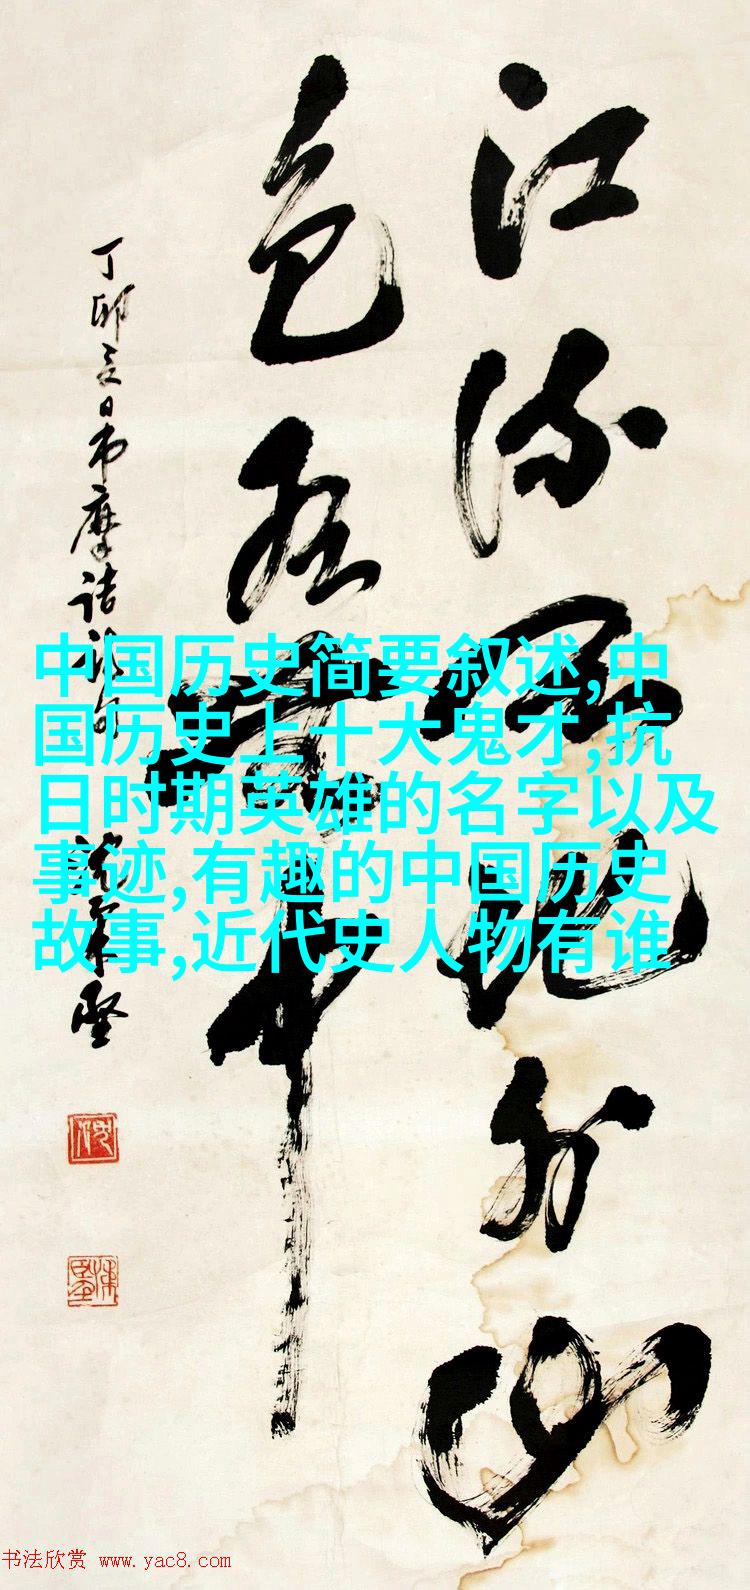 江流天地外山
色有无中
丁卯夏日书摩诘诗句
中国历史简要叙述,中
国历史上十大鬼才,抗
日时期英雄的名字以及
事迹,有趣的中国历史
故事,近代史人物有谁
书法欣赏 www.yac8.com